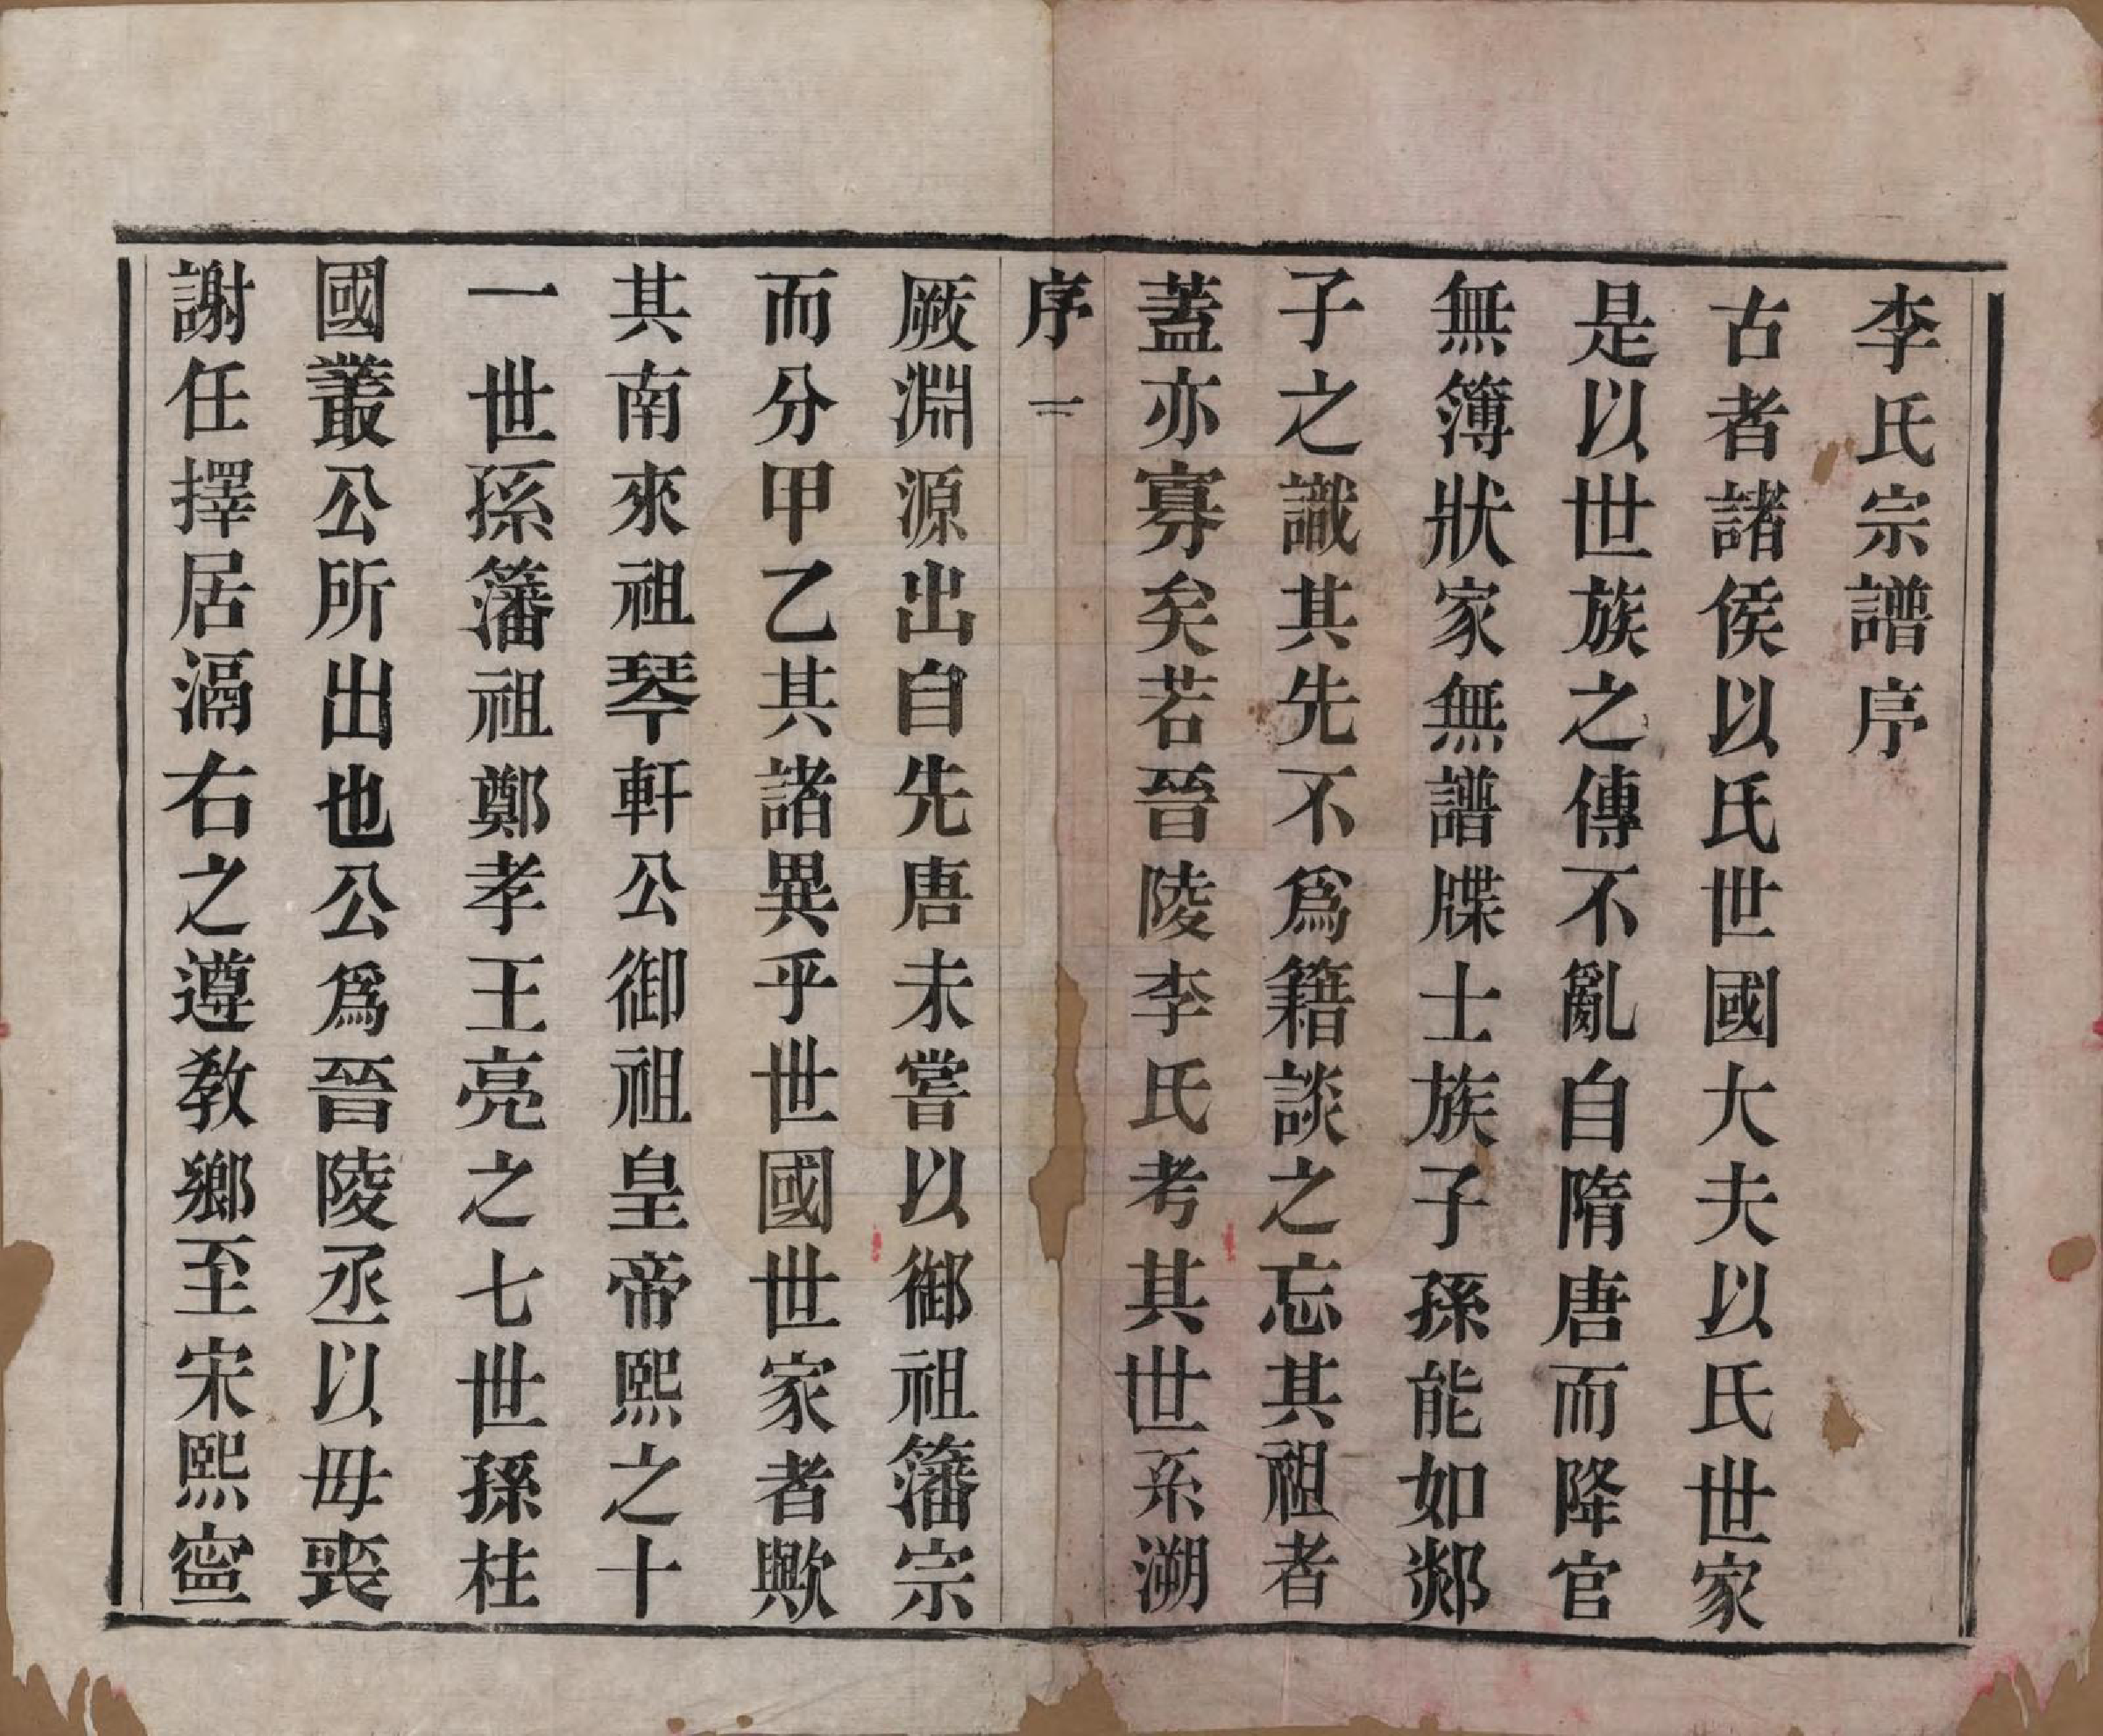 李氏宗譜序
古者諸侯以氏世國大夫以氏世家
是以世族之傳不亂自隋唐而降官
無簿狀家無譜牒士族子孫能如郯
子之識其先不爲籍談之忘其祖者
蓋亦寡矣若晉陵李氏考其世系溯
序 一
厥淵源出自先唐未嘗以御祖籓宗
而分甲乙其諸異乎世國世家者歟
其南來祖琴軒公御祖皇帝熙之十
一世孫籓祖鄭孝王亮之七世孫柱
國叢公所出也公爲晉陵丞以毋喪
謝任擇居滆右之遵教鄉至宋熙寍